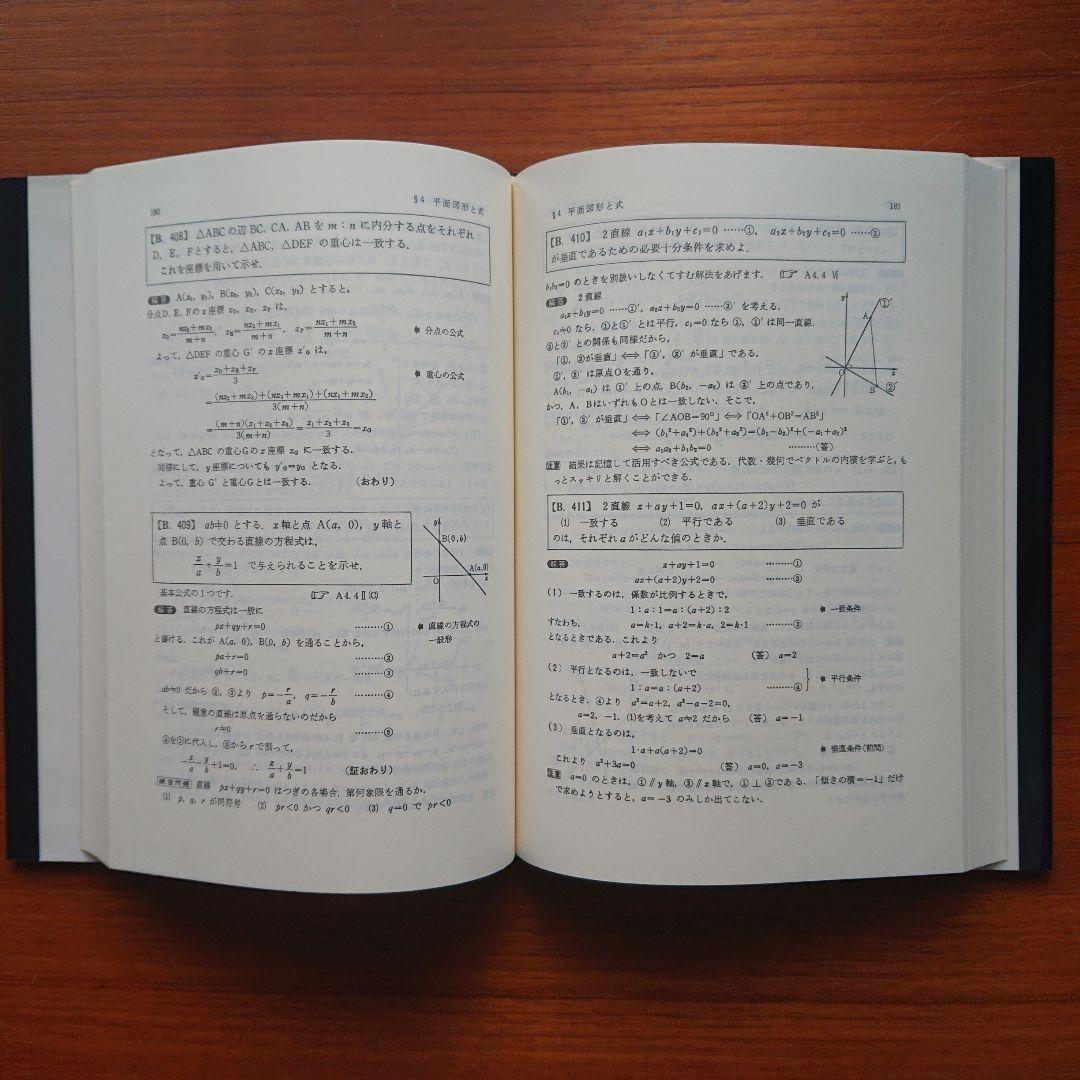 180
§4 平面図形と式
【B. 408】 △ABCの辺 BC, CA, AB を m：n に内分する点をそれぞれ
D, E, F とすると，△ABC, △DEF の重心は一致する．
これを座標を用いて示せ．
解答 A(x₁, y₁), B(x₂, y₂), C(x₃, y₃) とすると，
分点D, E, F の x 座標 x_D, x_E, x_F は，
x_D=(nx₂+mx₃)/(m+n), x_E=(nx₃+mx₁)/(m+n), x_F=(nx₁+mx₂)/(m+n) 分点の公式
よって，△DEF の重心 G′ の x 座標 x′_G は，
x′_G=(x_D+x_E+x_F)/3 重心の公式
=((nx₂+mx₃)+(nx₃+mx₁)+(nx₁+mx₂))/3(m+n)
=(m+n)(x₁+x₂+x₃)/3(m+n)=(x₁+x₂+x₃)/3=x_G
となって，△ABC の重心Gの x 座標 x_G に一致する．
同様にして，y 座標についても y′_G=y_G となる．
よって，重心 G′ と重心Gとは一致する． (おわり)
【B. 409】 ab≠0 とする．x 軸と点 A(a, 0), y 軸と
点 B(0, b) で交わる直線の方程式は，
x/a+y/b=1 で与えられることを示せ．
y
B(0, b)
A(a, 0)
O
x
基本公式の1つです． ☞ A4.4 Ⅱ(C)
解答 直線の方程式は一般に
px+qy+r=0 ………① 直線の方程式の
一般形
と書ける．これが A(a, 0), B(0, b) を通ることから，
pa+r=0 ………②
qb+r=0 ………③
ab≠0 だから ②, ③より p=-r/a, q=-r/b ………④
そして，題意の直線は原点を通らないのだから
r≠0 ………⑤
④を①に代入し，⑤から r で割って，
-x/a-y/b+1=0, ∴ x/a+y/b=1 (証おわり)
練習問題 直線 px+qy+r=0 はつぎの各場合，第何象限を通るか．
(1) p, q, r が同符号 (2) pr<0 かつ qr<0 (3) q=0 で pr<0
§4 平面図形と式
181
【B. 410】 2直線 a₁x+b₁y+c₁=0 ……①, a₂x+b₂y+c₂=0 ……②
が垂直であるための必要十分条件を求めよ．
b₁b₂=0 のときを別扱いしなくてすむ解法をあげます． ☞ A4.4 Ⅵ
解答 2直線
a₁x+b₁y=0 ……①′, a₂x+b₂y=0 ……②′ を考える．
c₁≠0 なら，①と①′ とは平行，c₁=0 なら ①, ①′ は同一直線．
②と②′ との関係も同様だから，
「①, ②が垂直」⟺「①′, ②′ が垂直」である．
①′, ②′ は原点Oを通り，
A(b₁, -a₁) は ①′ 上の点，B(b₂, -a₂) は ②′ 上の点であり，
かつ，A, BはいずれもOとは一致しない．そこで，
「①′, ②′ が垂直」⟺「∠AOB=90°」⟺「OA²+OB²=AB²」
⟺ (b₁²+a₁²)+(b₂²+a₂²)=(b₁-b₂)²+(-a₁+a₂)²
⟺ a₁a₂+b₁b₂=0 ………(答)
y
①′
A
O
x
B
②′
注意 結果は記憶して活用すべき公式である．代数・幾何でベクトルの内積を学ぶと，も
っとスッキリと解くことができる．
【B. 411】 2直線 x+ay+1=0, ax+(a+2)y+2=0 が
(1) 一致する (2) 平行である (3) 垂直である
のは，それぞれ a がどんな値のときか．
解答 x+ay+1=0 ………①
ax+(a+2)y+2=0 ………②
(1) 一致するのは，係数が比例するときで，
1：a：1=a：(a+2)：2 一致条件
すなわち， a=k·1, a+2=k·a, 2=k·1 ………③
となるときである．これより
a+2=a² かつ 2=a (答) a=2
(2) 平行となるのは，一致しないで
1：a=a：(a+2) ………④ 平行条件
となるとき．④より a²=a+2, a²-a-2=0,
a=2, -1. (1)を考えて a≠2 だから (答) a=-1
(3) 垂直となるのは，
1·a+a(a+2)=0 垂直条件(前問)
これより a²+3a=0 (答) a=0, a=-3
注意 a=0 のときは，①∥y 軸，②∥x 軸で，①⊥②である．「傾きの積=-1」だけ
で求めようとすると，a=-3 のみしか出てこない．